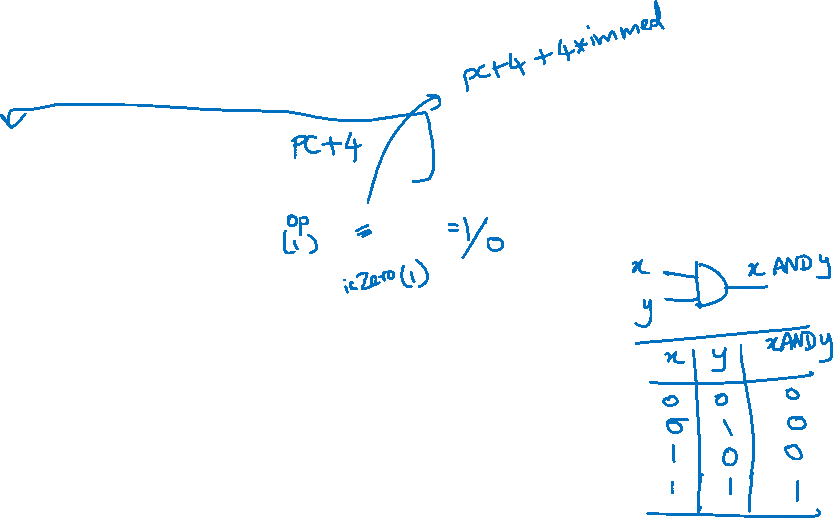 PC+4+4*immed
PC+4
op = =1/0
(1)
isZero(1)
x x AND y
y
x y xAND y
0 0 0
0 1 0
1 0 0
1 1 1